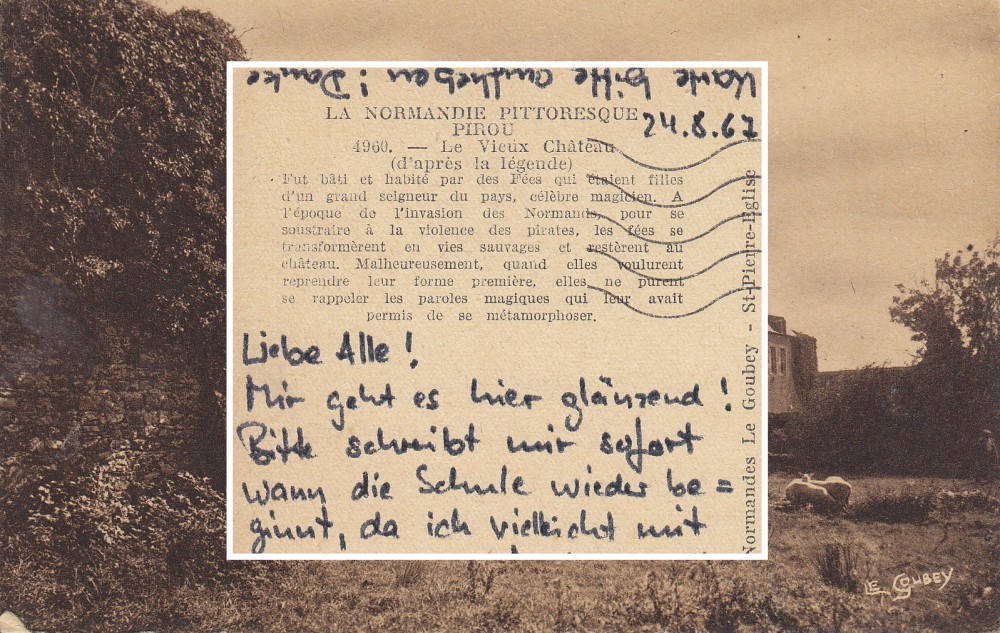 Karte bitte aufheben! Danke
LA NORMANDIE PITTORESQUE
24.8.67
PIROU
4960. — Le Vieux Château
(d'après la légende)
Fut bâti et habité par des Fées qui étaient filles
d'un grand seigneur du pays, célèbre magicien. A
l'époque de l'invasion des Normands, pour se
soustraire à la violence des pirates, les fées se
transformèrent en vies sauvages et restèrent au
château. Malheureusement, quand elles voulurent
reprendre leur forme première, elles ne purent
se rappeler les paroles magiques qui leur avait
permis de se métamorphoser.
Liebe Alle!
Mir geht es hier glänzend!
Bitte schreibt mir sofort
wann die Schule wieder be=
ginnt, da ich vielleicht mit
Normandes Le Goubey - St-Pierre-Eglise
LE GOUBEY